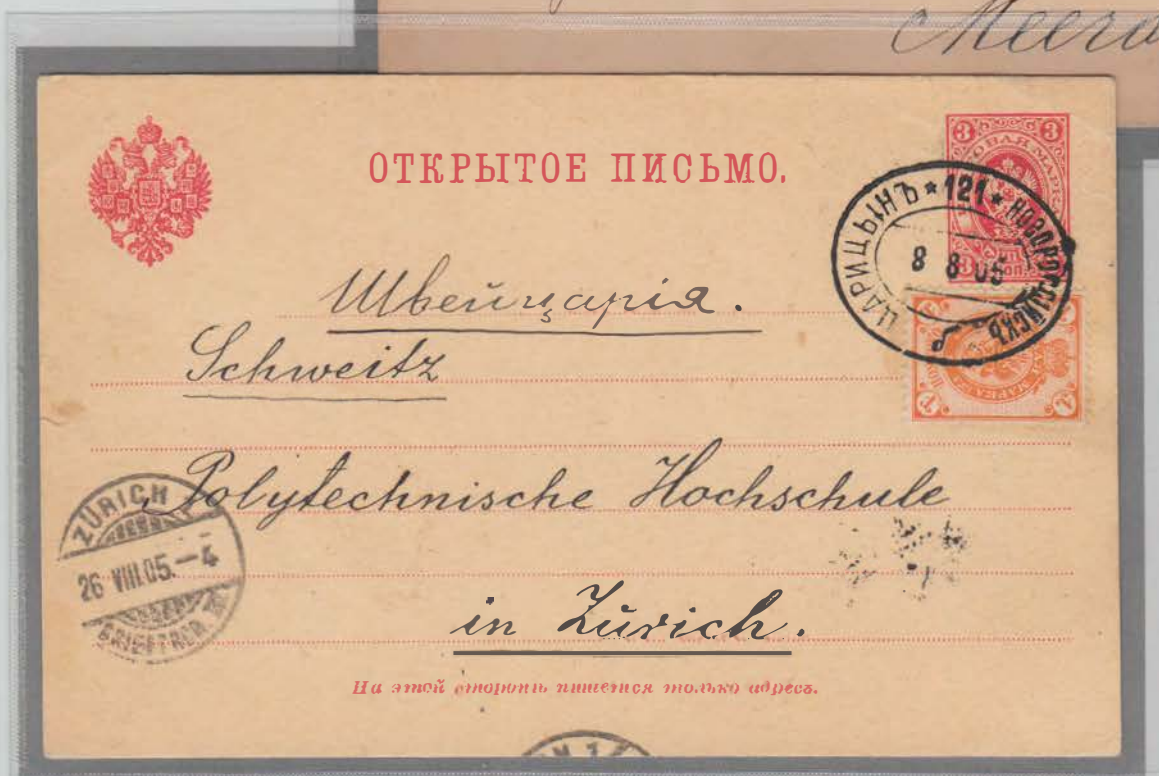 Meera
ОТКРЫТОЕ ПИСЬМО.
3 3
ЦАРИЦЫНЪ * 121 * НОВОРОССІЙСКЪ
8 8 05
Швейцарія.
Schweitz
Polytechnische Hochschule
ZÜRICH
26 VIII.05.–4
in Zürich.
На этой сторонѣ пишется только адресъ.